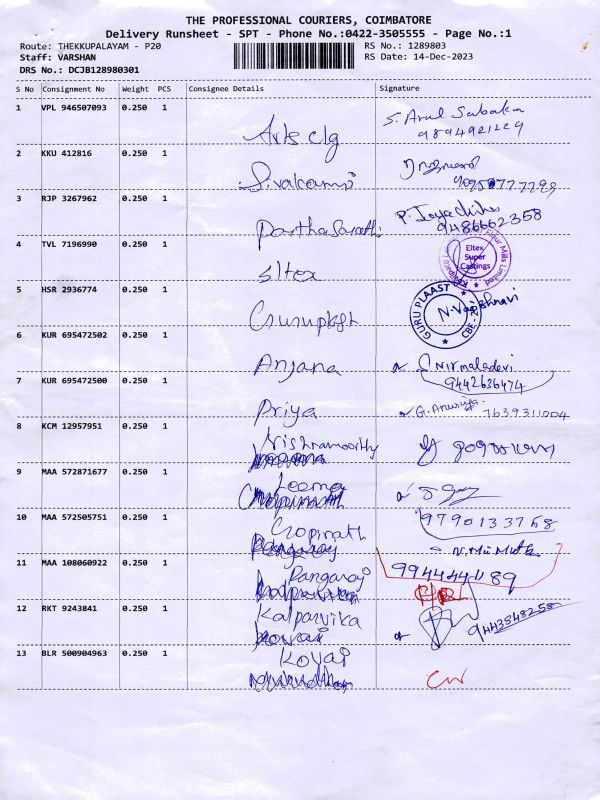 THE PROFESSIONAL COURIERS, COIMBATORE
Delivery Runsheet - SPT - Phone No.:0422-3505555 - Page No.:1
Route: THEKKUPALAYAM - P20
RS No.: 1289803
Staff: VARSHAN
RS Date: 14-Dec-2023
DRS No.: DCJB128980301
S No Consignment No Weight PCS Consignee Details Signature
1 VPL 946507093 0.250 1 Arts clg S. Arul Sabakar
9894921229
2 KKU 412816 0.250 1 Sivakami
3 RJP 3267962 0.250 1 Partha Sarathi P. Jayachitra
9486662358
4 TVL 7196990 0.250 1 Eltex
Eltex
Super
Castings
5 HSR 2936774 0.250 1 Guruplast N. Vaishnavi
GURU PLAAST
CBE
6 KUR 695472502 0.250 1 Anjana S. Nirmaladevi
9442636474
7 KUR 695472500 0.250 1 Priya G. Anusuya 7639311004
8 KCM 12957951 0.250 1 Krishnamoorthy
9 MAA 572871677 0.250 1 Leema
10 MAA 572505751 0.250 1 Gopinath 9790133768
11 MAA 108060922 0.250 1 Rangaraj
9944441189
12 RKT 9243841 0.250 1 Kalparvika 9443548258
13 BLR 500904963 0.250 1 Kovai